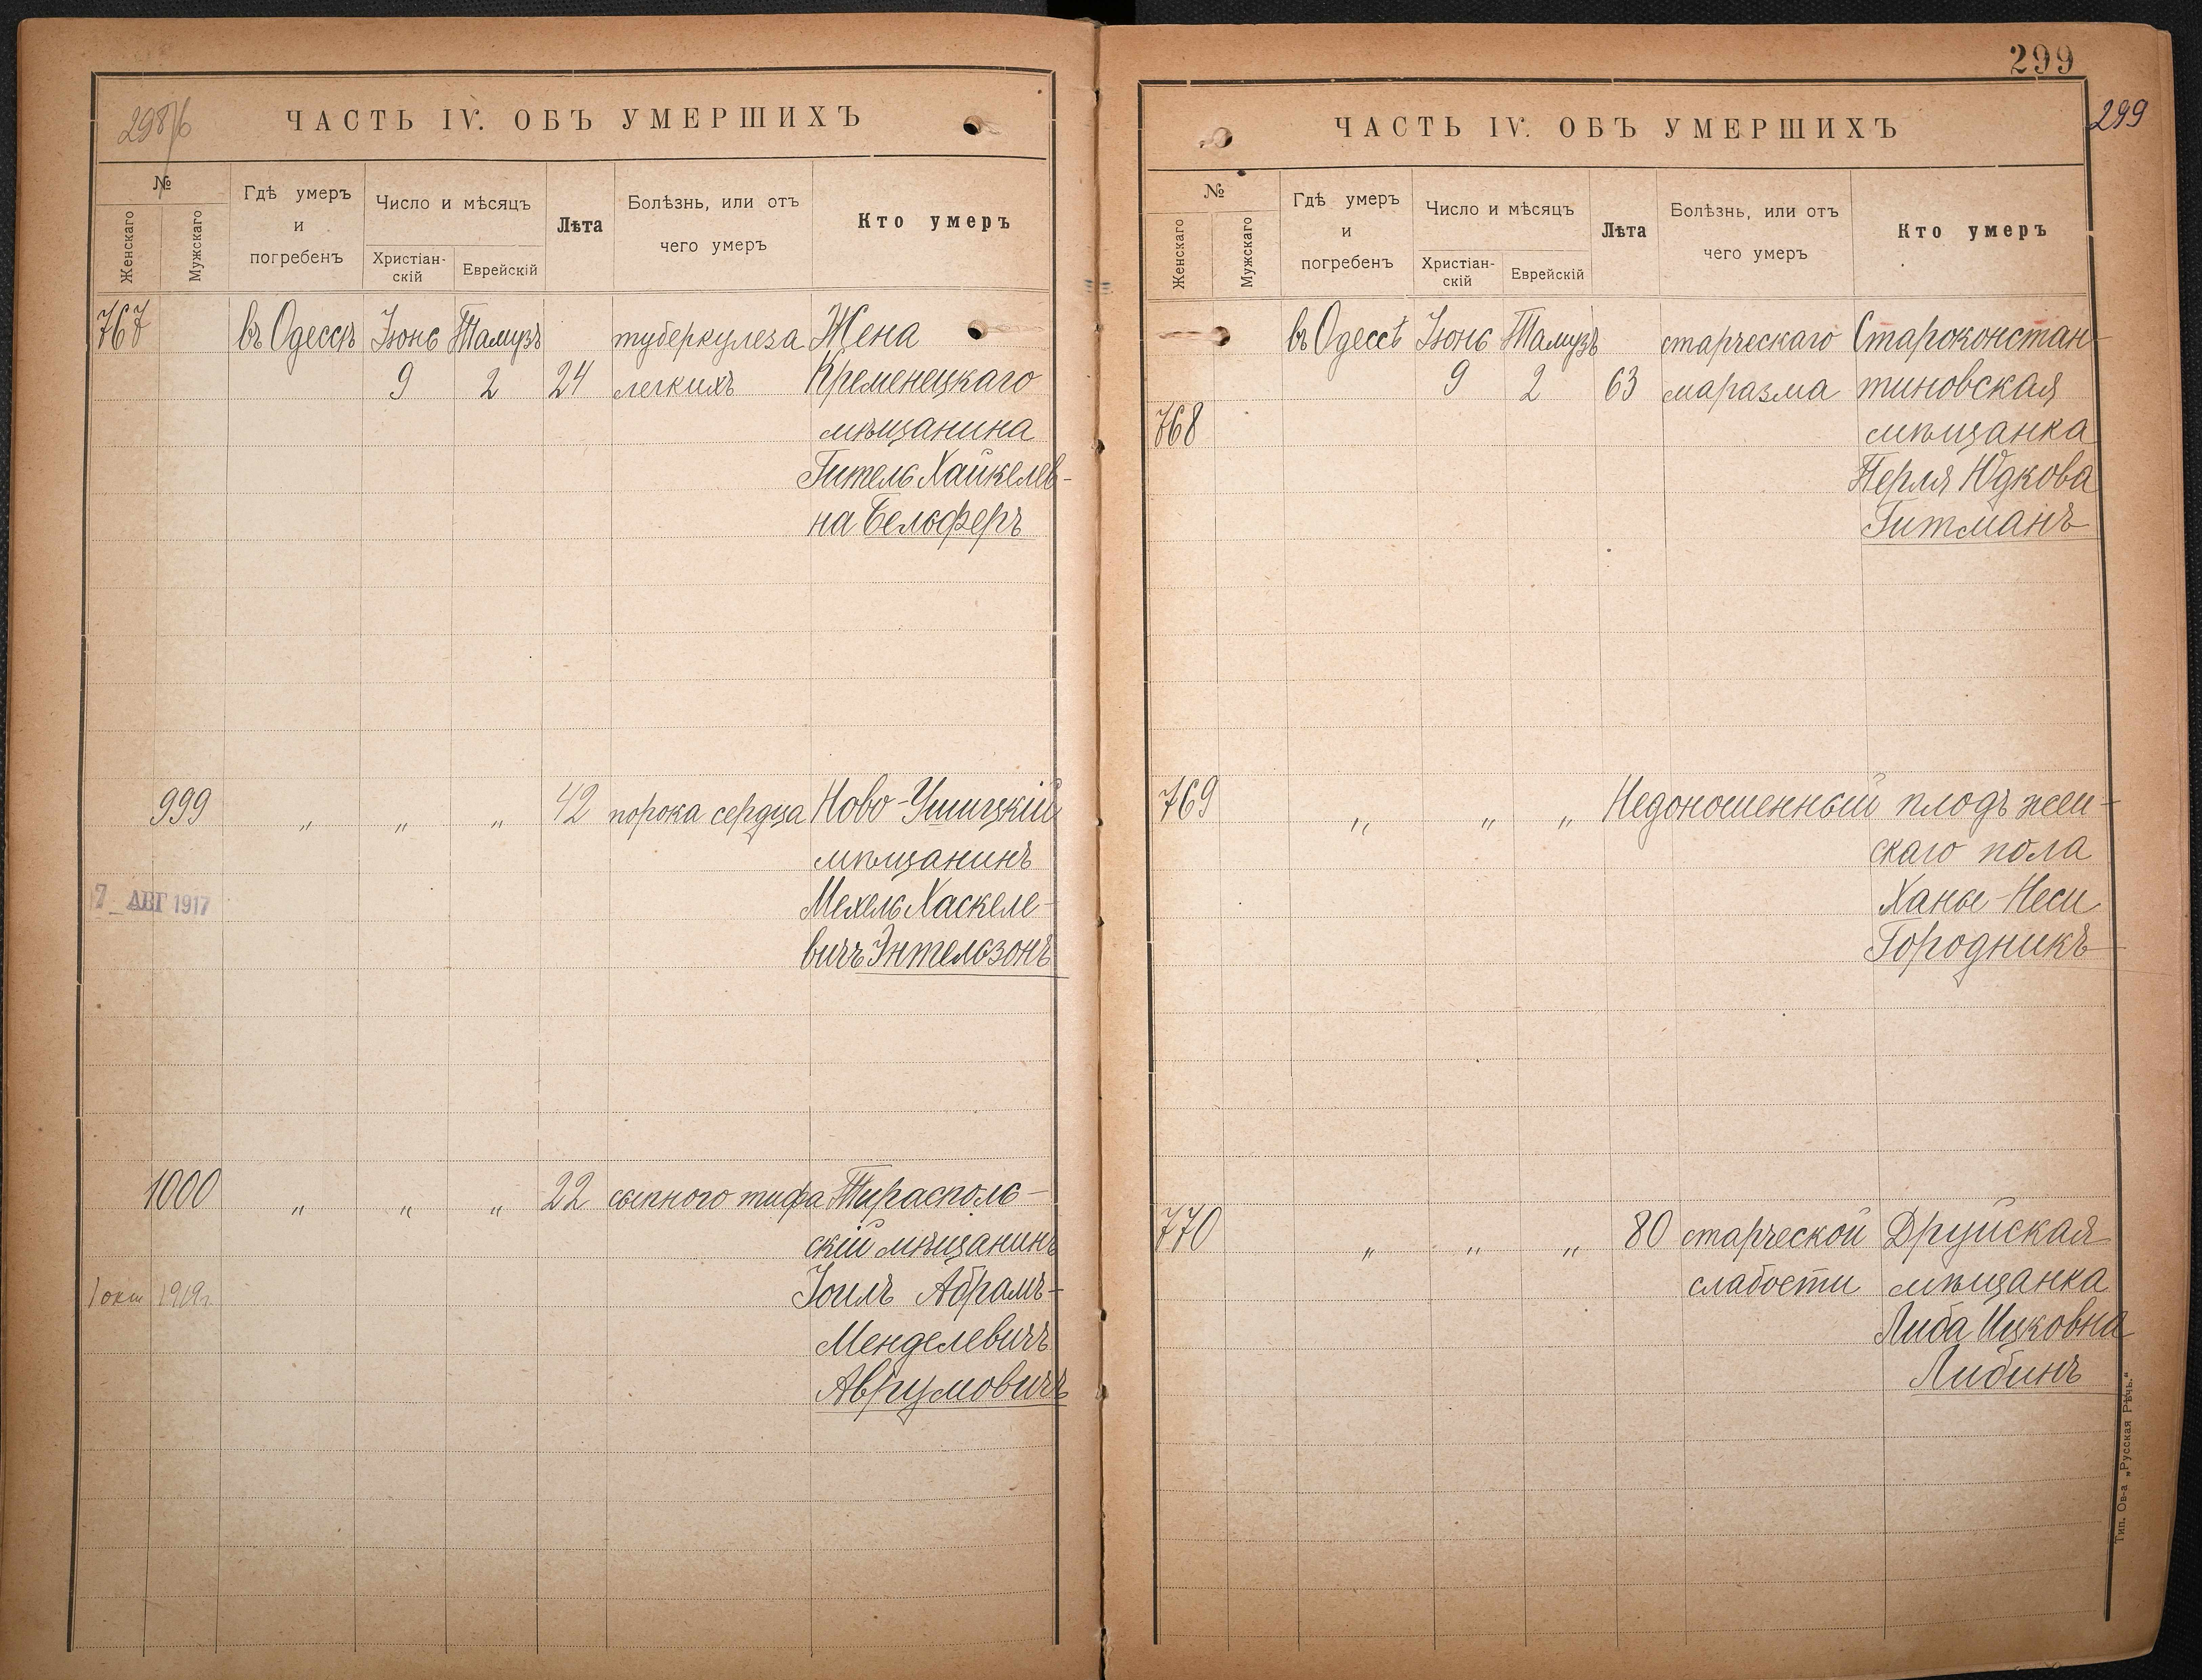 298/б
ЧАСТЬ IV. ОБЪ УМЕРШИХЪ
№
Женскаго
Мужскаго
Гдѣ умеръ
и
погребенъ
Число и мѣсяцъ
Христіан-
скій
Еврейскій
Лѣта
Болѣзнь, или отъ
чего умеръ
Кто умеръ
767 въ Одессѣ Іюнь Тамузъ туберкулеза Жена
9 2 24 легкихъ Кременецкаго
мѣщанина
Гитель Хайкелев-
на Бельферъ
999 „ „ „ 42 порока сердца Ново-Ушицкій
мѣщанинъ
7_ АВГ 1917 Мехель Хаскеле-
вичъ Энтельзонъ
1000 „ „ „ 22 сыпного тифа Тирасполь-
скій мѣщанинъ
1 окт 1919г. Іоилъ Абрамъ-
Менделевичъ
Аврумовичъ
299
299
ЧАСТЬ IV. ОБЪ УМЕРШИХЪ
№
Женскаго
Мужскаго
Гдѣ умеръ
и
погребенъ
Число и мѣсяцъ
Христіан-
скій
Еврейскій
Лѣта
Болѣзнь, или отъ
чего умеръ
Кто умеръ
въ Одессѣ Іюнь Тамузъ старческаго Староконстан-
9 2 63 маразма тиновская
768 мѣщанка
Перля Юдкова
Гитманъ
769 „ „ „ Недоношенный плодъ жен-
скаго пола
Ханы-Неси
Городникъ
770 „ „ „ 80 старческой Друйская
слабости мѣщанка
Либа Ицковна
Либинъ
Тип. Ов-а „Русская Рѣчь.“